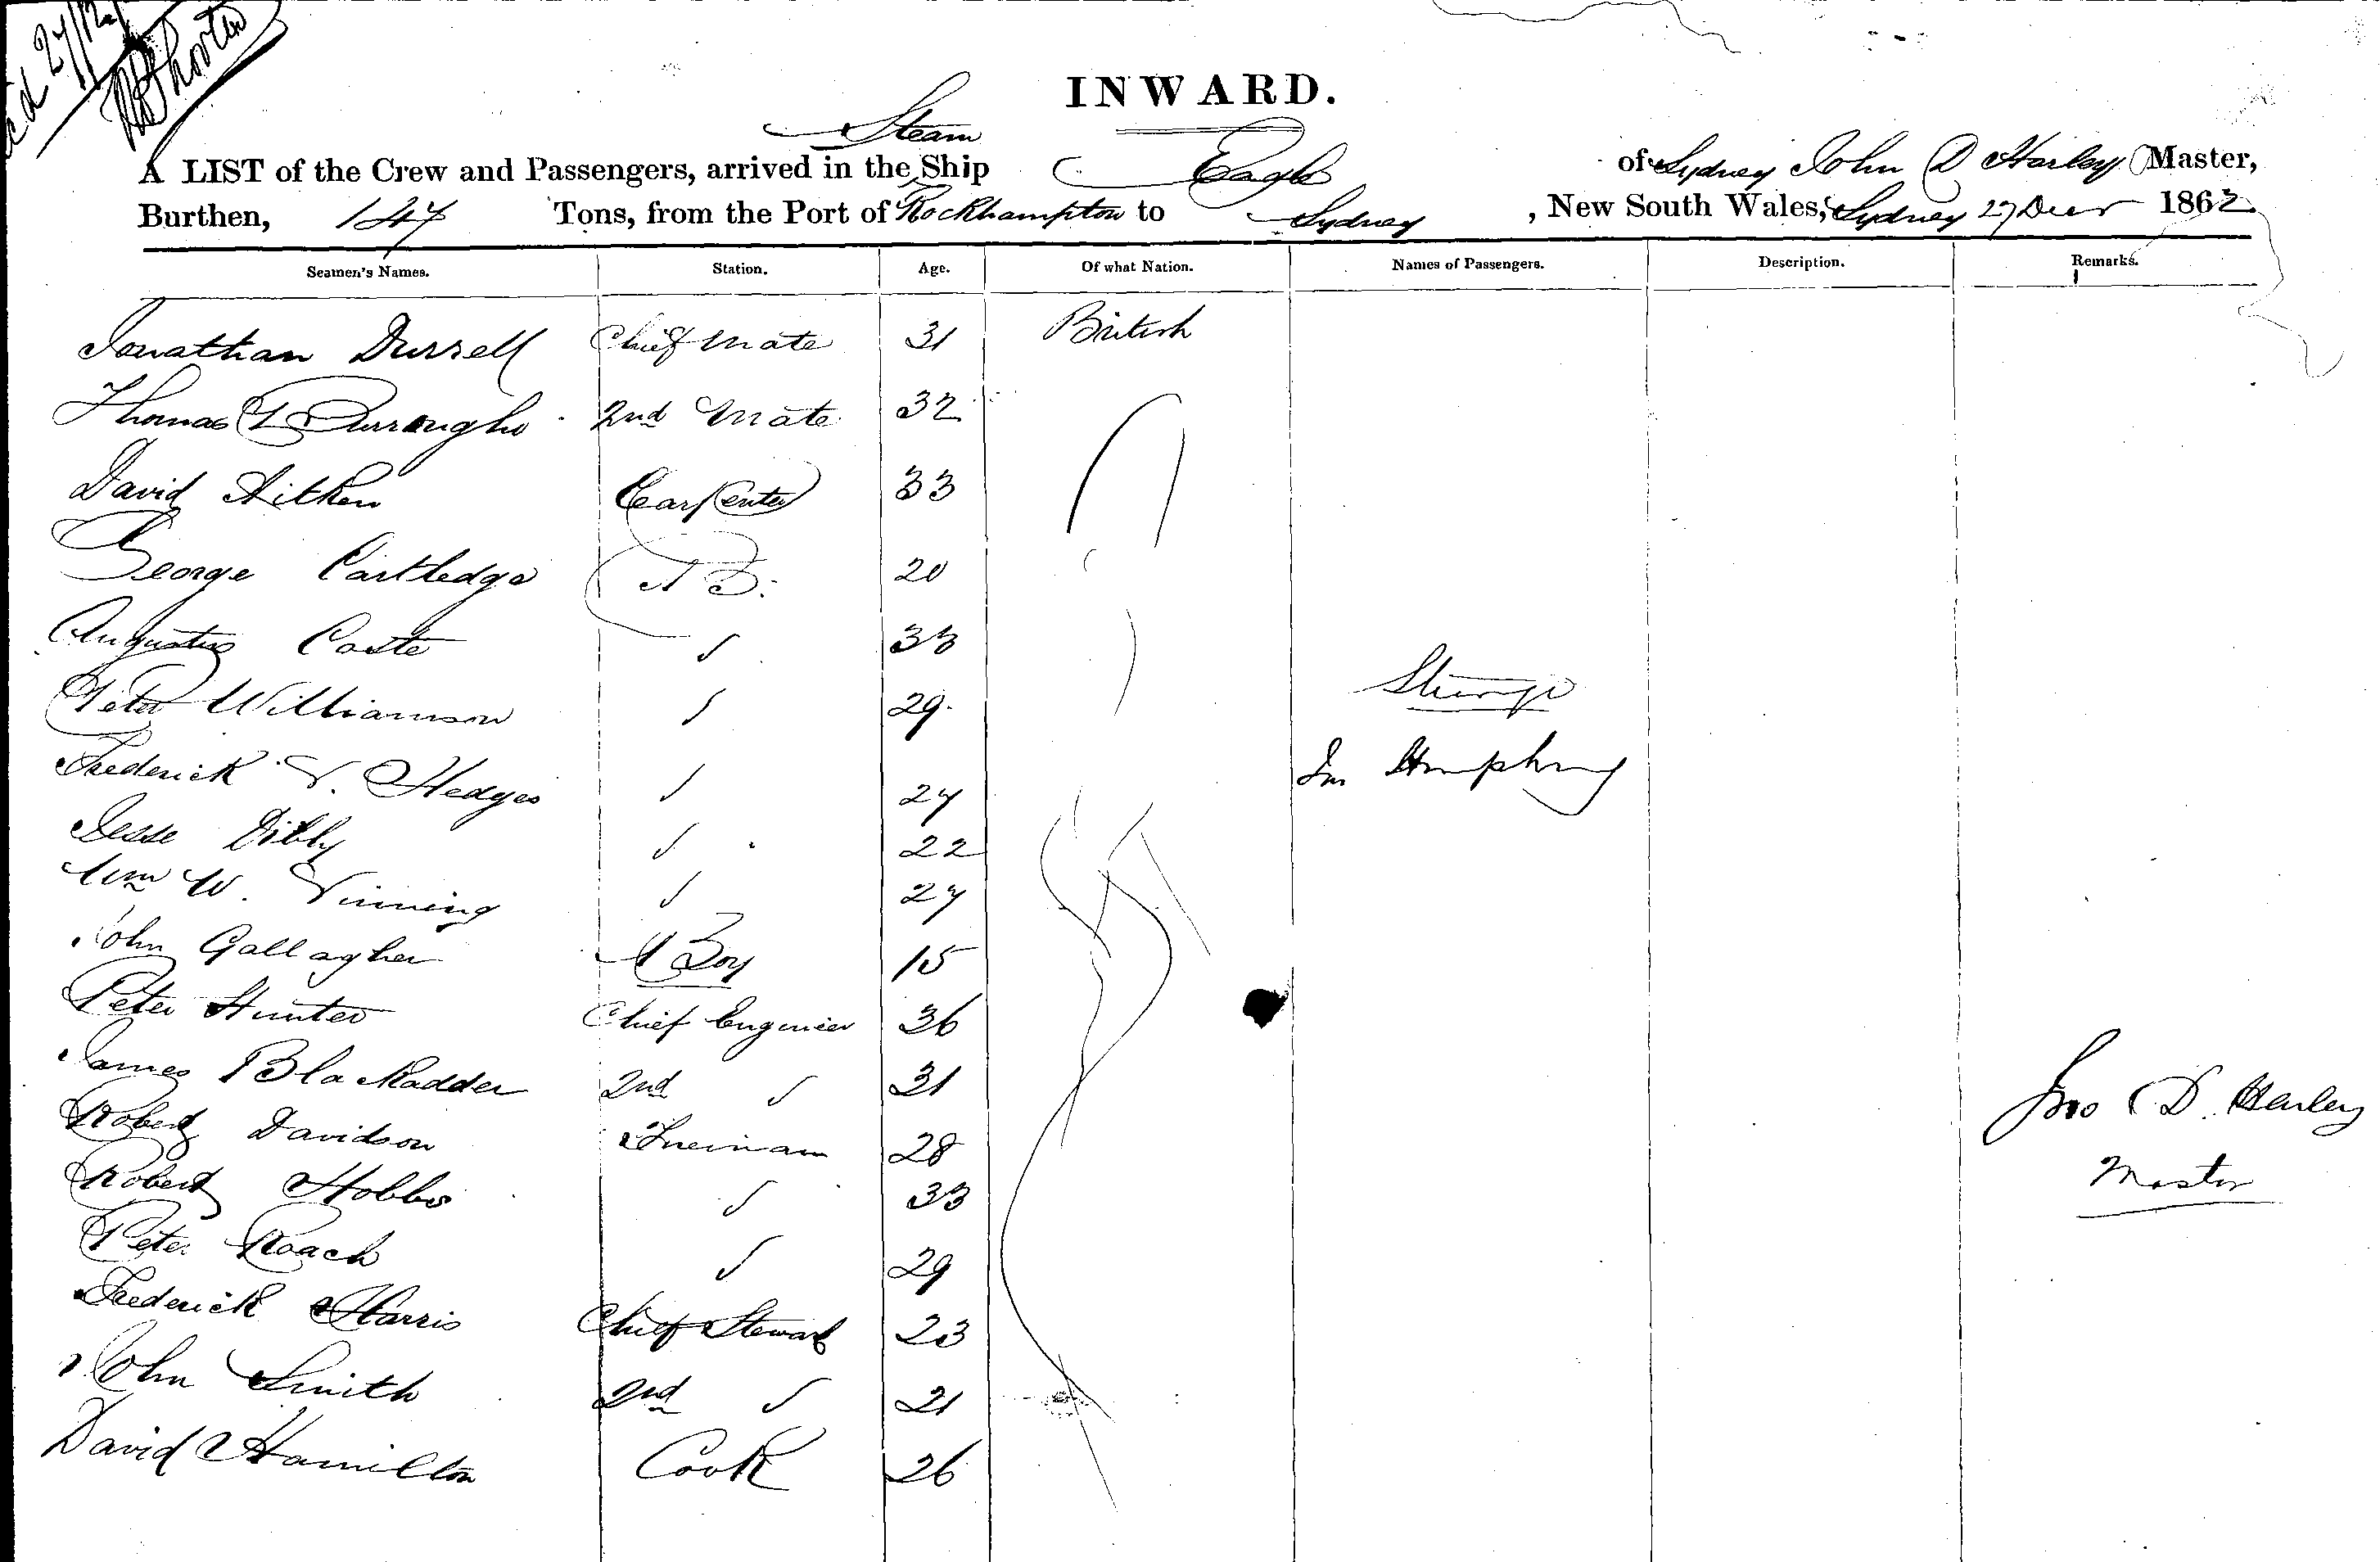 INWARD.
Steam
A LIST of the Crew and Passengers, arrived in the Ship Eagle of Sydney John D Harley Master,
Burthen, 147 Tons, from the Port of Rockhampton to Sydney , New South Wales, Sydney 27 Decr 1862
Seamen's Names. Station. Age. Of what Nation. Names of Passengers. Description. Remarks.
Jonathan Durrell Chief Mate 31 British
Thomas L Burroughs 2nd Mate 32
David Aitken Carpenter 33
George Cartledge A B. 20
Augustus Caste 33
Peter Williamson 29
Steerage
Frederick V. Hedges 27
Jno Humphrey
Jesse Dibly 22
Wm W. Vinning 27
John Gallagher A Boy 15
Peter Hunter Chief Engineer 36
James Blackadder 2nd 31
Robert Davidson Fireman 28
Jno D. Harley
Master
Robert Hobbs 33
Peter Roach 29
Frederick Harris Chief Steward 23
John Smith 2nd 21
David Hamilton Cook 26